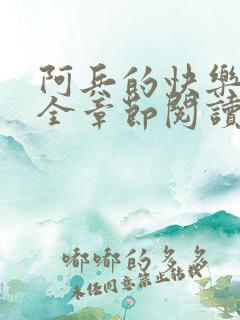 阿兵的快樂
全章節閱讀
嘟嘟的多多
未任同意禁止轉載